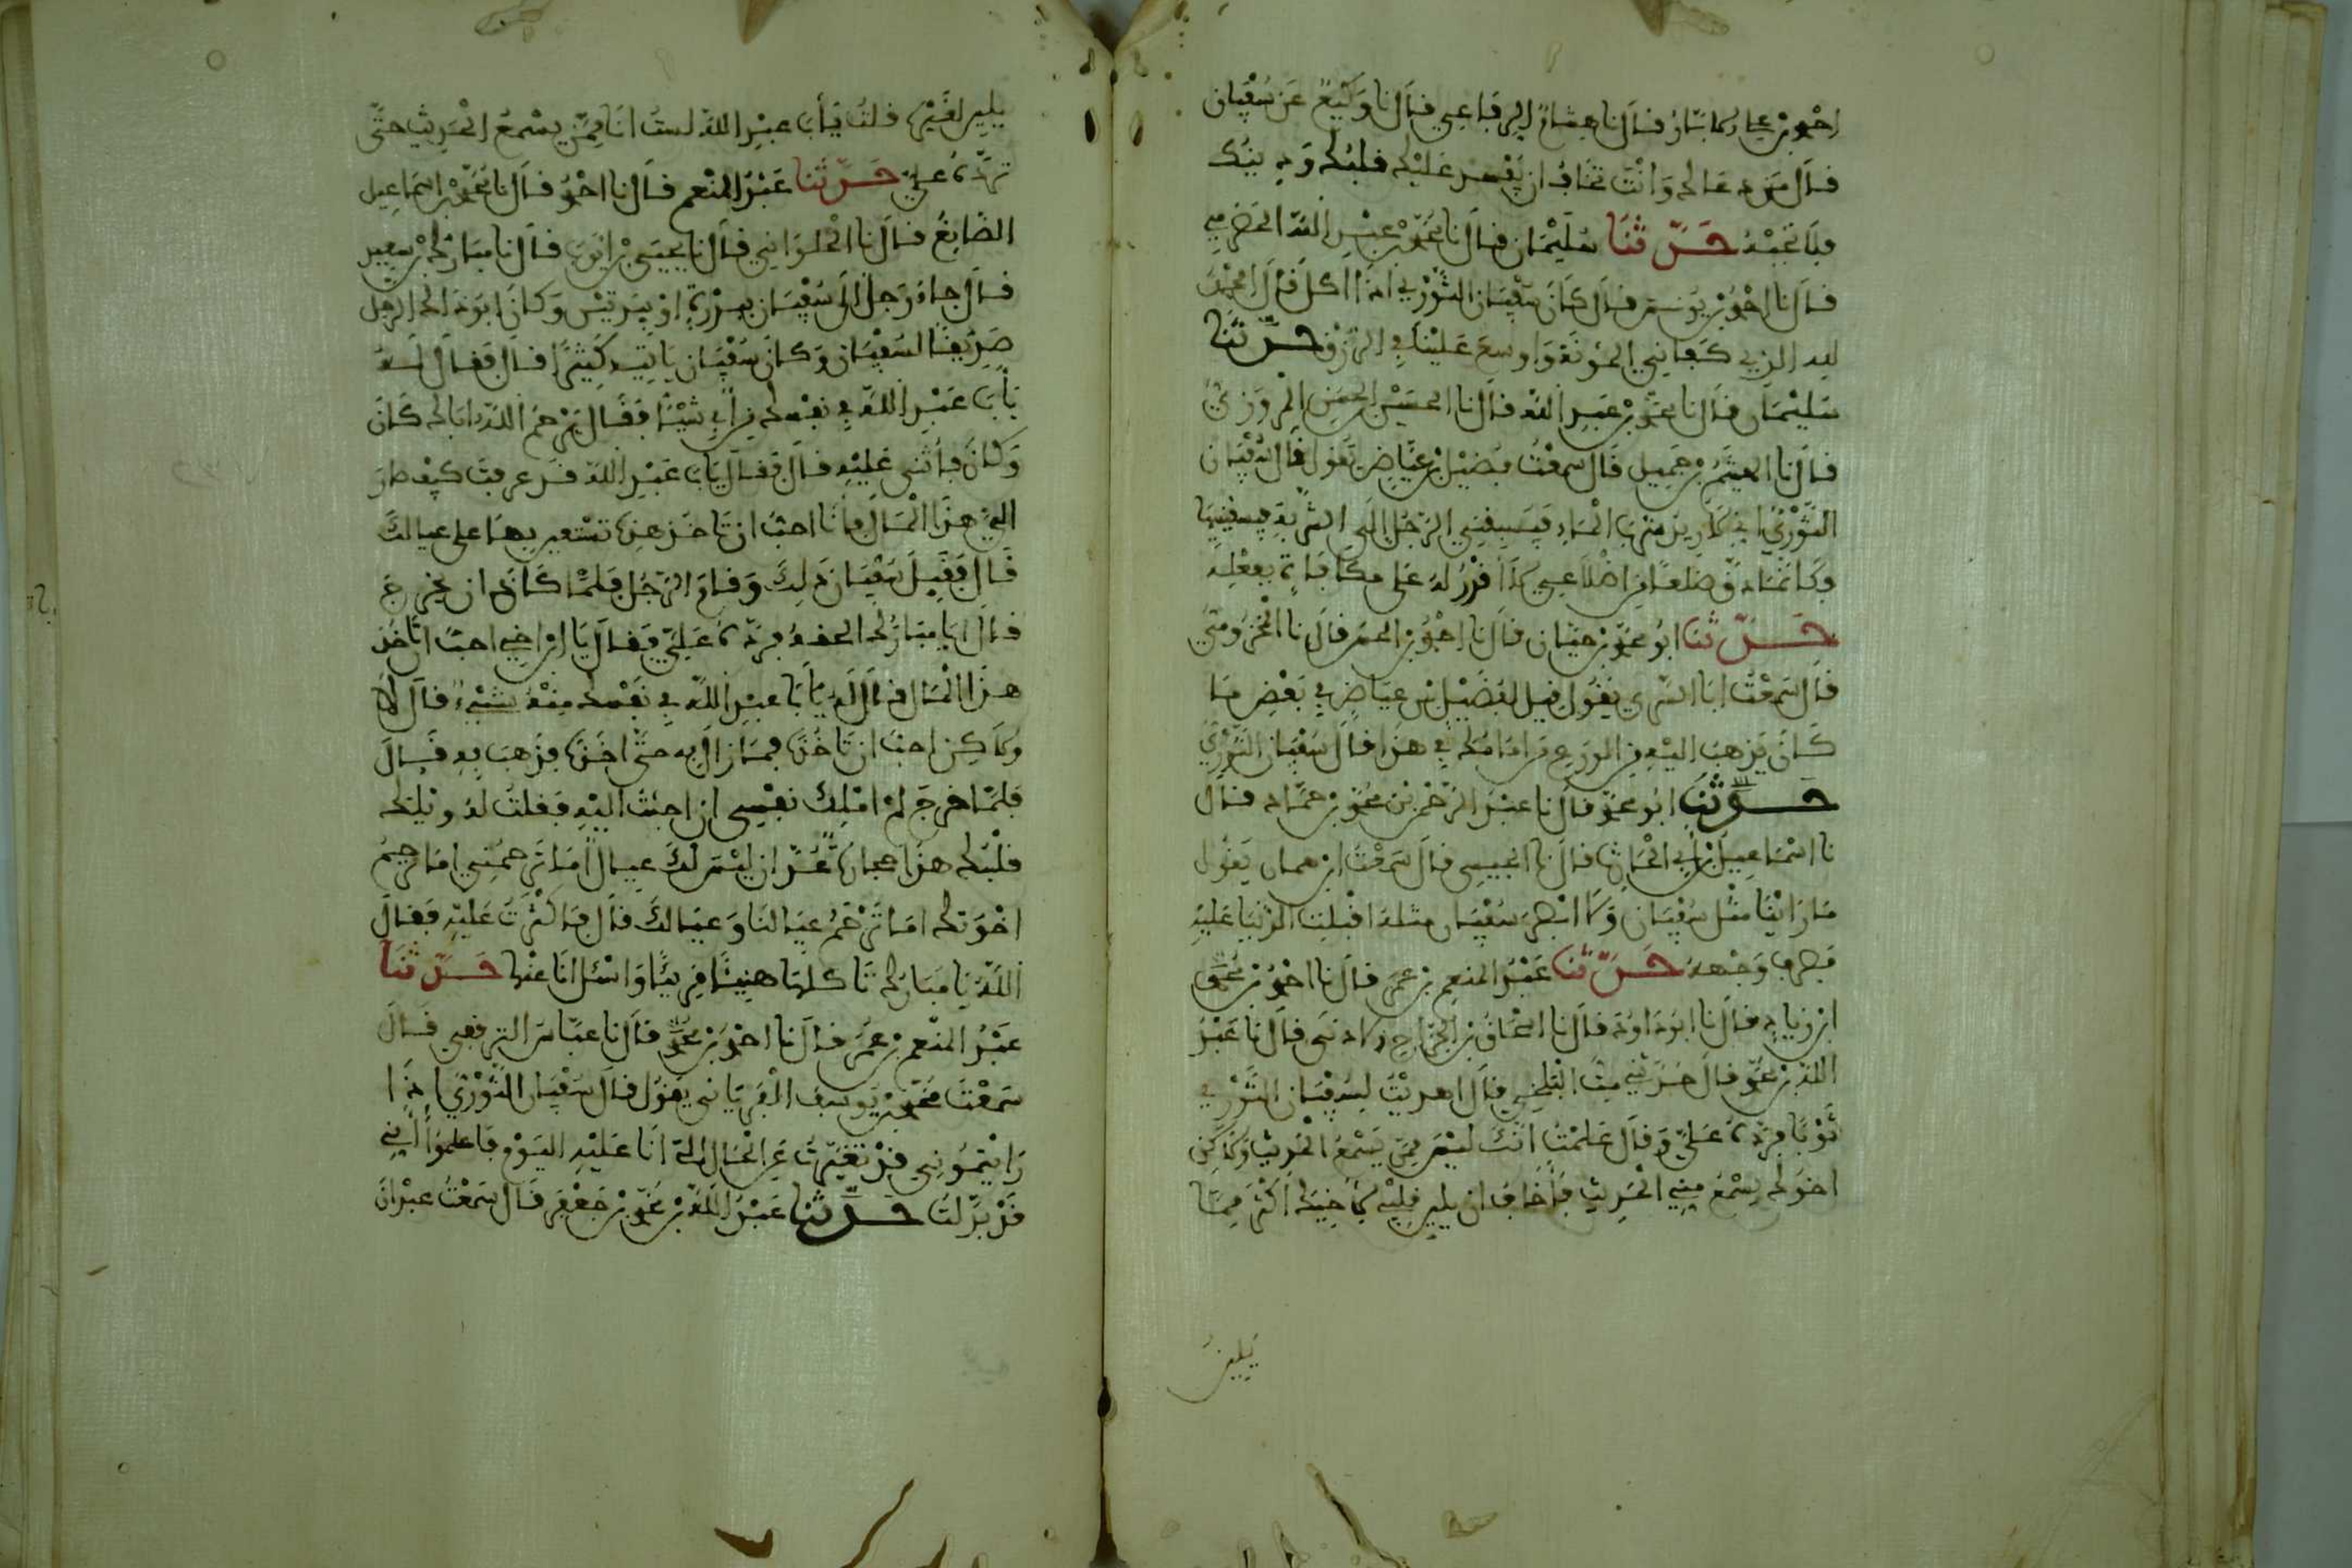 احمد بن علي بن الجارود قال نا هشام الرفاعي قال نا وكيع عن سفيان
قال من دعا لك وانت تخاف ان يفسد عليك قلبك ودينك
فلا تجبه حدثنا سليمان قال نا محمد بن عبد الله الحضرمي
قال نا احمد بن يونس قال كان سفيان الثوري اذا اكل قال الحمد
لله الذي كفاني المؤنة واوسع علينا في الرزق حدثنا
سليمان قال نا محمد بن عبد الله قال نا الحسين الحسن المروزي
قال نا الهيثم بن جميل قال سمعت فضيل بن عياض يقول قال سفيان
الثوري اني لاريد شرب الماء فيسبقني الرجل الى الشربة فيسقينيها
وكانما دق ضلعا من اضلاعي لا اقدر له على مكافاة بفعله
حدثنا ابو محمد بن حيان قال نا احمد بن الحسن قال نا المخزومي
قال سمعت ابا السري يقول قيل لفضيل بن عياض في بعض ما
كان يذهب اليه من الورع من امامك في هذا قال سفيان الثوري
حدثنا ابو محمد قال نا عبد الرحمن بن محمد بن حماد قال
نا اسماعيل بن ابي الحارث قال نا اخنسي قال سمعت ابن همان يقول
ما راينا مثل سفيان ولا ابصر سفيان مثله اقبلت الدنيا عليه
فصرف وجهه حدثنا عبد المنعم بن عمر قال نا احمد بن محمد
ابن زياد قال نا ابو داود قال نا اسحاق بن الجراح الاذني قال نا عبد
الله بن محمد قال حدثني مت البلخي قال اهديت لسفيان الثوري
ثوبا فرده علي وقال علمت انك ليس ممن يسمع الحديث ولاكن
اخوك يسمع مني الحديث فاخاف ان يلين قلبي لاخيك اكثر مما
يلين
يلين لغيره قلت يابا عبد الله لست انا ممن يسمع الحديث حتى
ترده علي حدثنا عبد المنعم قال نا احمد قال نا محمد بن اسماعيل
الصايغ قال نا الحلواني قال نا يحيى بن ايوب قال نا مبارك بن سعيد
قال جاء رجل الى سفيان بصرة او بصرتين وكان ابو ذاك الرجل
صديقا لسفيان وكان سفيان ياتيه كثيرا قال فقال له
يابا عبد الله في نفسك من ابي شيئا فقال يرحم الله اباك كان
وكان فاثنى عليه قال فقال يابا عبد الله قد عرفت كيف صار
الي هذا المال فانا احب ان تاخذ هذه تستعين بها على عيالك
قال فقبل سفيان ذلك وقام الرجل فلما كاد ان يخرج
قال يا مبارك الحقه فرده علي فقال يا ابن اخي احب ان تاخذ
هذا المال قال له يا ابا عبد الله في نفسك منه شيء قال لا
ولاكن احب ان تاخذه فما زال به حتى اخذه فذهب به قال
فلما خرج لم املك نفسي ان اجئت اليه فقلت له ويلك
قلبك هذا حجارة عد ان ليس لك عيال اما ترحمني اما ترحم
اخوتك اما ترحم عيالنا وعيالك قال فاكثرت عليه فقال
الله يا مبارك تاكلها هنيئا مريئا واسئل انا عنها حدثنا
عبد المنعم بن عمر قال نا احمد بن محمد قال نا عباس الترقفي قال
سمعت محمد بن يوسف الفريابي يقول قال سفيان الثوري اذا
رايتموني قد تغيرت عن الحال التي انا عليه اليوم فاعلموا اني
قد بدلت حدثنا عبد الله بن محمد بن جعفر قال سمعت عبدان